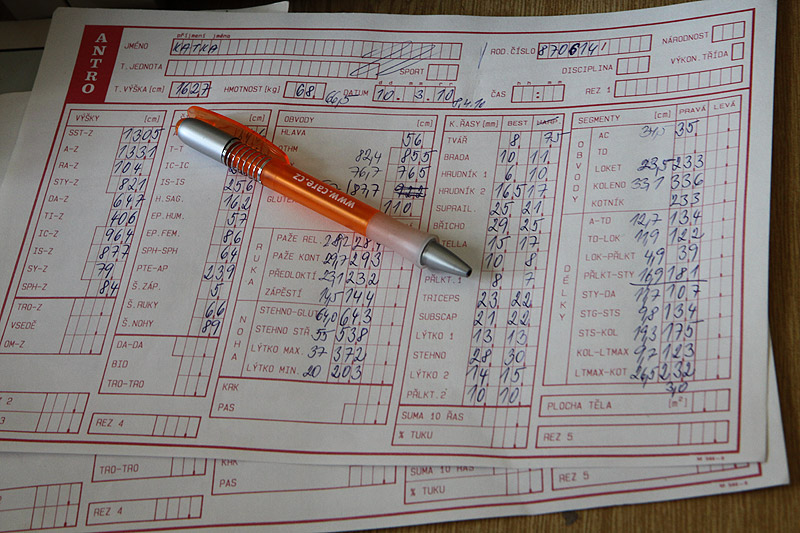 ANTRO
příjmení jméno
JMÉNO KATKA
ROD. ČÍSLO 870614
NÁRODNOST
T. JEDNOTA
SPORT
DISCIPLINA
VÝKON. TŘÍDA
T. VÝŠKA (cm) 1627 HMOTNOST (kg) 68 66,5 DATUM 10.3.10
ČAS
REZ 1
VÝŠKY (cm)
SST-Z 1305
A-Z 1331
RA-Z 104
STY-Z 821
DA-Z 647
TI-Z 406
IC-Z 964
IS-Z 877
SY-Z 79
SPH-Z 84
TRO-Z
VSEDĚ
OM-Z
(cm)
T-T
IC-IC
IS-IS 256
H. SAG. 162
EP. HUM. 57
EP. FEM. 86
SPH-SPH 64
PTE-AP 239
Š. ZÁP. 5
Š. RUKY 66
Š. NOHY 89
DA-DA
BID
TRO-TRO
OBVODY (cm)
HLAVA 56
82,4 855
76,7 765
87,7
110
RUKA
PAŽE REL. 282 284
PAŽE KONT 29,7 293
PŘEDLOKTÍ 231 232
ZÁPĚSTÍ 145 144
NOHA
STEHNO-GLU 64,0 643
STEHNO STŘ. 55 538
LÝTKO MAX. 37 372
LÝTKO MIN. 20 203
KRK
PAS
K. ŘASY (mm) BEST
TVÁŘ 8 75
BRADA 10 11
HRUDNÍK 1 6 10
HRUDNÍK 2 165 17
SUPRAIL. 25 21
BŘICHO 29 25
15 17
10 8
PŘLKT. 1 8 7
TRICEPS 23 22
SUBSCAP 21 22
LÝTKO 1 13 13
STEHNO 28 30
LÝTKO 2 14 15
PŘLKT. 2 10 10
SUMA 10 ŘAS
% TUKU
SEGMENTY (cm) PRAVÁ LEVÁ
OBVODY
AC 34,0 35
TD
LOKET 23,5 233
KOLENO 331 336
KOTNÍK 233
DÉLKY
A-TO 12,7 134
TO-LOK 119 122
LOK-PŘLKT 49 39
PŘLKT-STY 169 181
STY-DA 117 107
STG-STS 98 134
STS-KOL 193 175
KOL-LTMAX 97 123
LTMAX-KOT 26,5 232
30
PLOCHA TĚLA (m²)
REZ 4
REZ 5
www.care.cz
TRO-TRO
KRK
PAS
SUMA 10 ŘAS
% TUKU
REZ 4
REZ 5